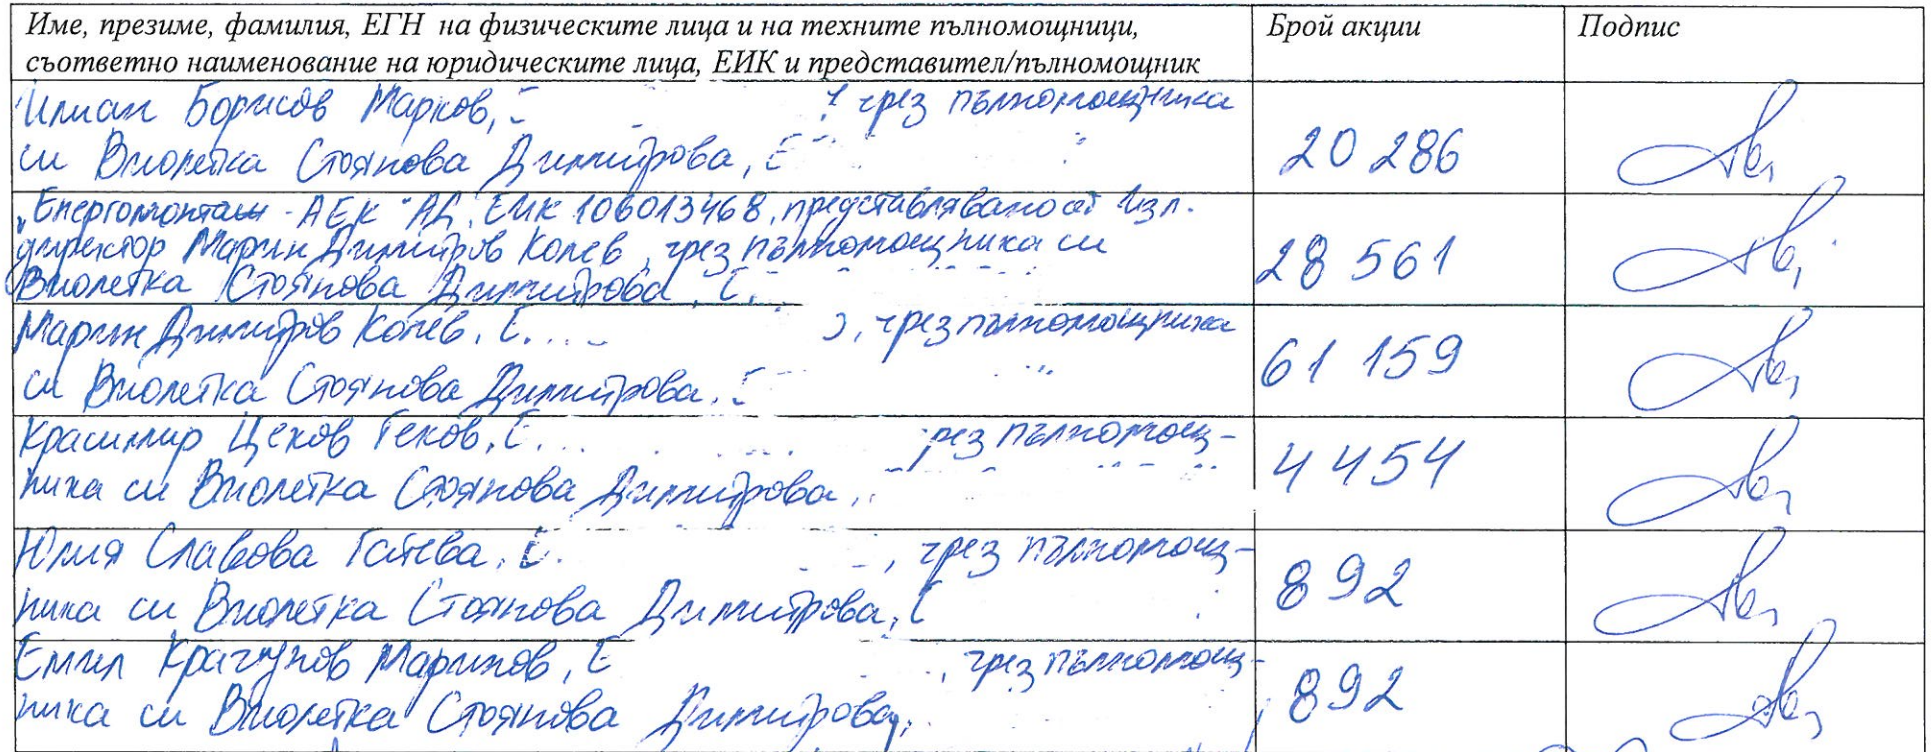 Име, презиме, фамилия, ЕГН на физическите лица и на техните пълномощници,
съответно наименование на юридическите лица, ЕИК и представител/пълномощник
Брой акции
Подпис
Илиан Борисов Марков, чрез пълномощника
си Виолетка Стоянова Димитрова, Е
20 286
„Енергомонтаж-АЕК" АД, ЕИК 106013468, представлявано от Изп.
директор Марин Димитров Колев, чрез пълномощника си
Виолетка Стоянова Димитрова, Е
28 561
Марин Димитров Колев, Е, чрез пълномощника
си Виолетка Стоянова Димитрова, Е
61 159
Красимир Цеков Геков, Е. чрез пълномощ-
ника си Виолетка Стоянова Димитрова,
4 454
Юлия Славова Гатева, Е. , чрез пълномощ-
ника си Виолетка Стоянова Димитрова, Е
892
Емил Крачунов Маринов, Е , чрез пълномощ-
ника си Виолетка Стоянова Димитрова,
892